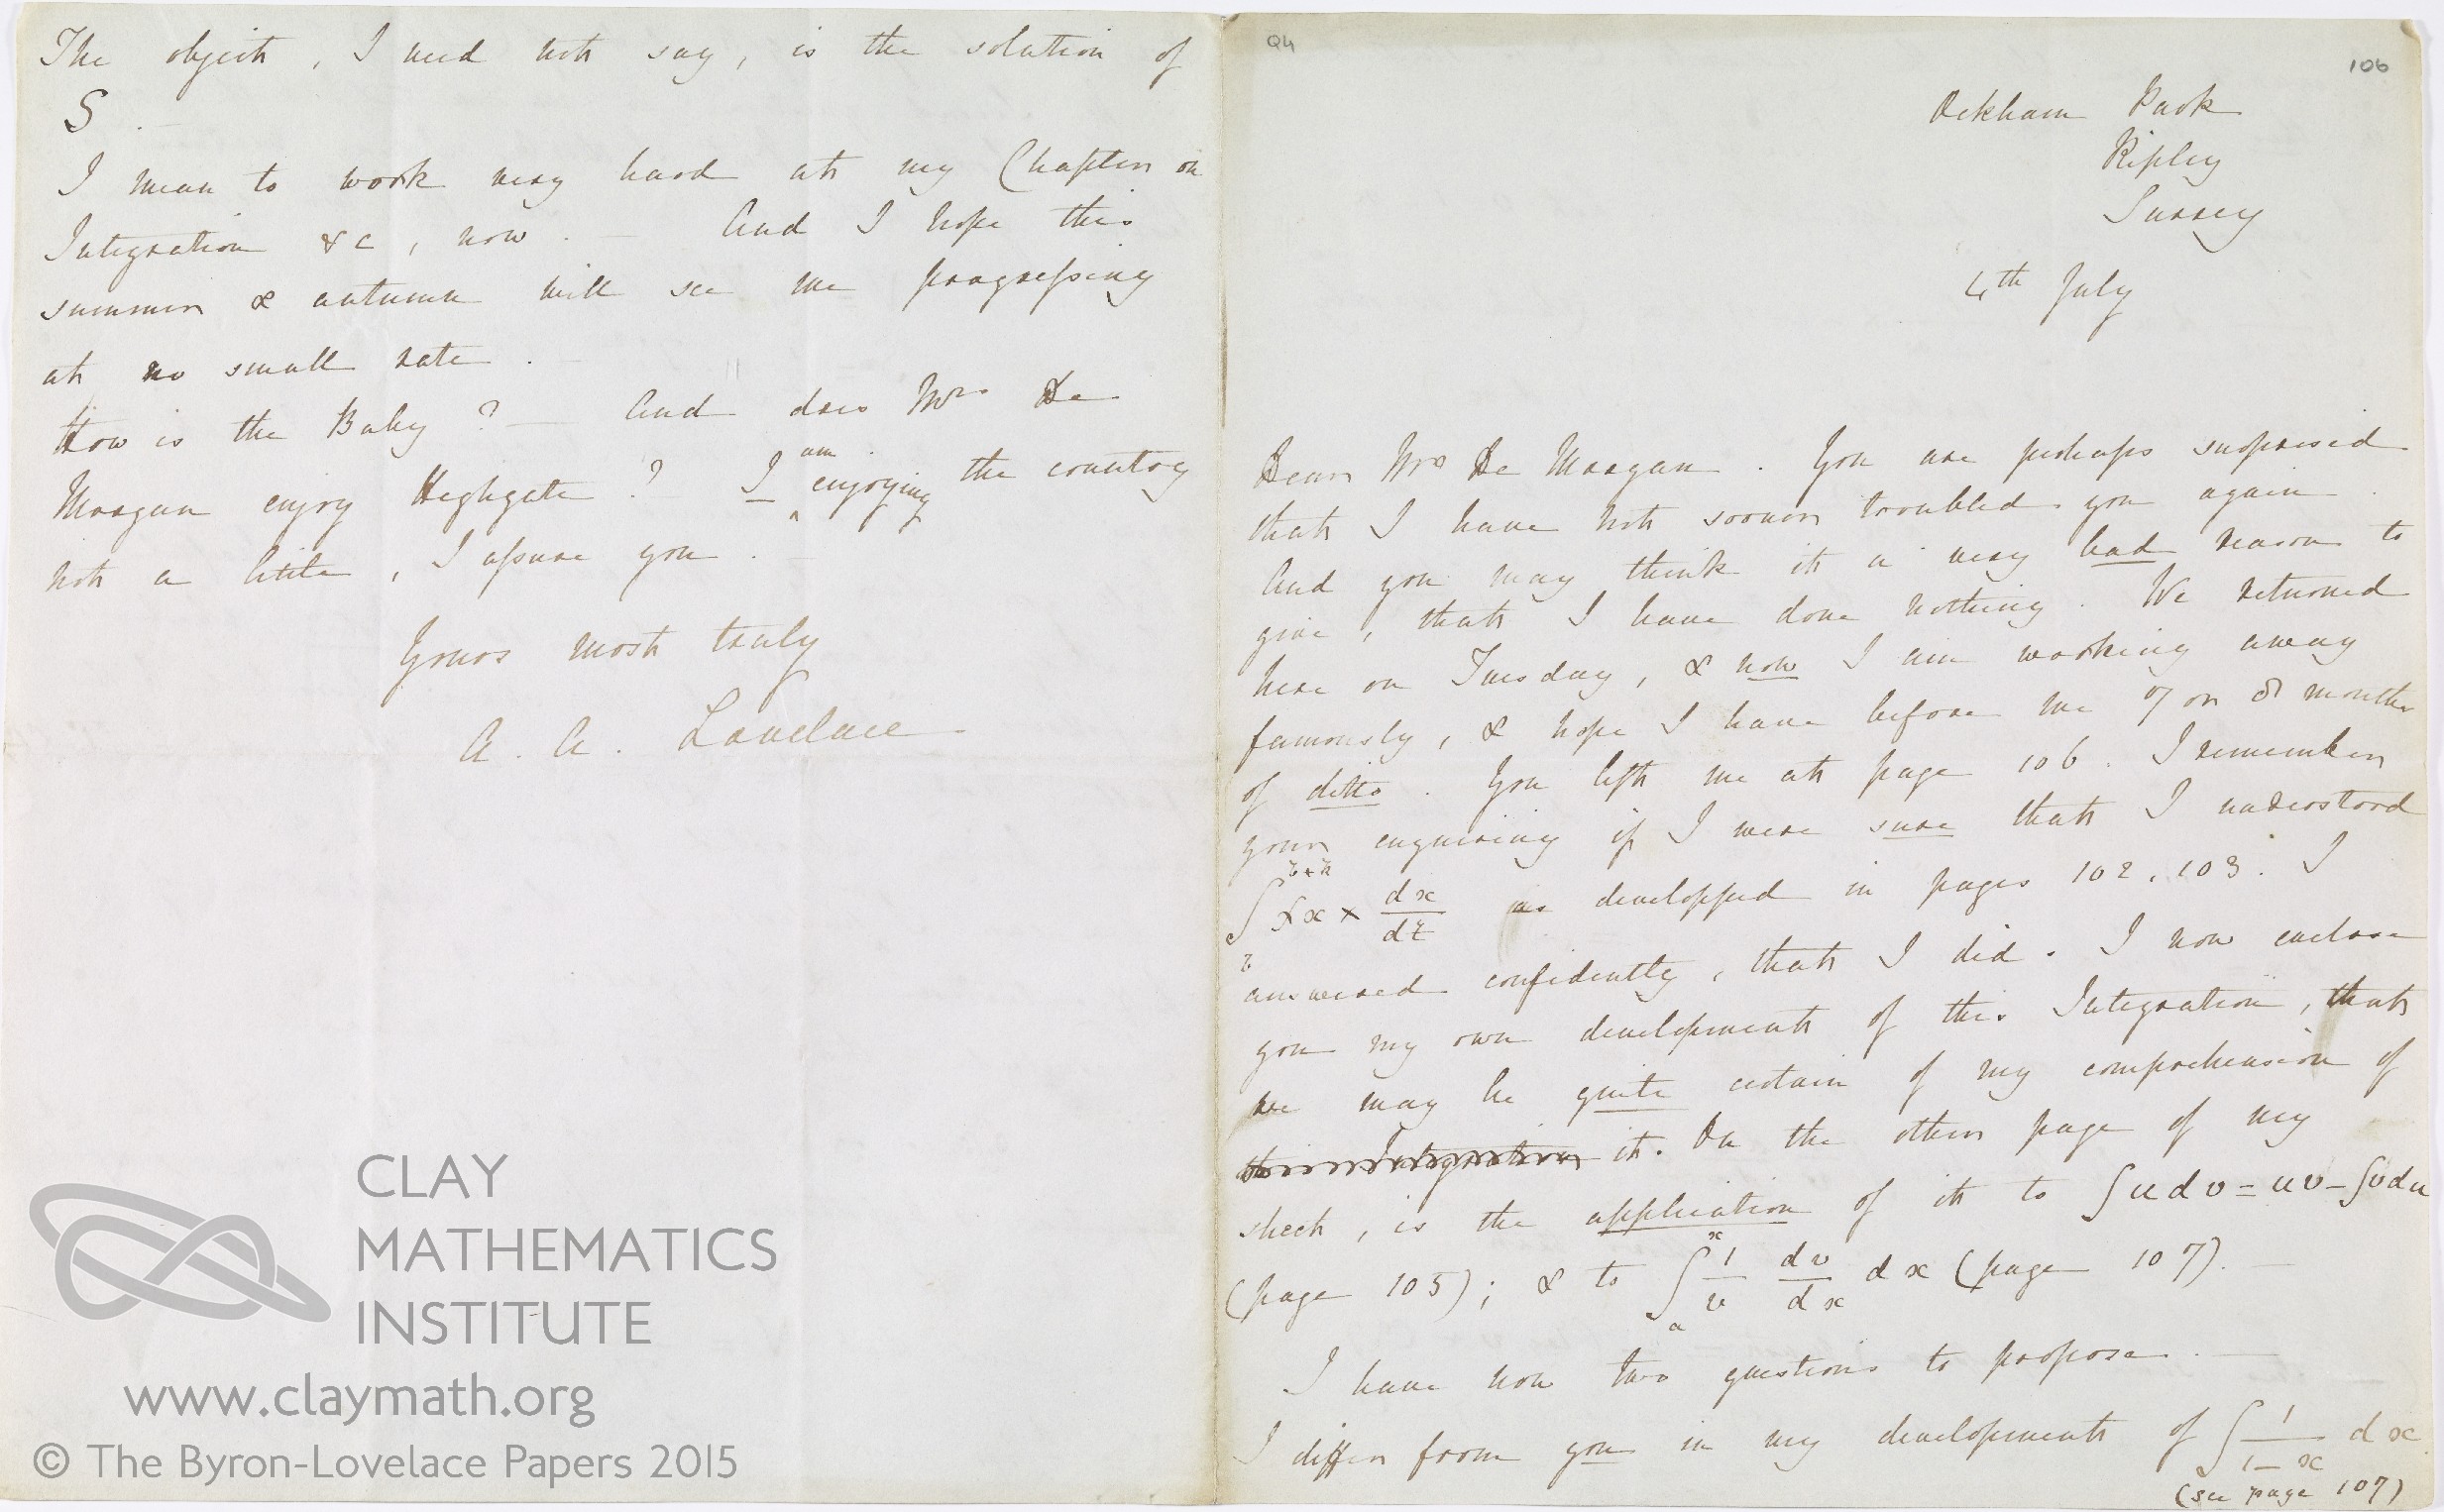 The object, I need not say, is the solution of
S.
I mean to work very hard at my Chapter on
Integration &c, now. — And I hope this
summer & autumn will see me progressing
at no small rate. —
How is the Baby? — And does Mrs De
Morgan enjoy Highgate? I am enjoying the country
not a little, I assure you. —
Yours most truly
A. A. Lovelace
Q4
106
Ockham Park
Ripley
Surrey
4th July
Dear Mr De Morgan. You are perhaps surprised
that I have not sooner troubled you again.
And you may think it a very bad reason to
give, that I have done nothing. We returned
here on Tuesday, & now I am working away
famously, & hope I have before me 7 or 8 months
of ditto. You left me at page 106. I remember
your enquiring if I were sure that I understood
∫_t^{t+k} fx × dx/dt as developped in pages 102, 103. I
answered confidently, that I did. I now enclose
you my own development of this Integration, that
we may be quite certain of my comprehension of
this Integration it. On the other page of my
sheet, is the application of it to ∫udv = uv − ∫vdu
(page 105); & to ∫_a^x 1/v dv/dx dx (page 107). —
I have now two questions to propose. —
I differ from you in my development of ∫ 1/(1−x) dx
(see page 107)
CLAY
MATHEMATICS
INSTITUTE
www.claymath.org
© The Byron-Lovelace Papers 2015